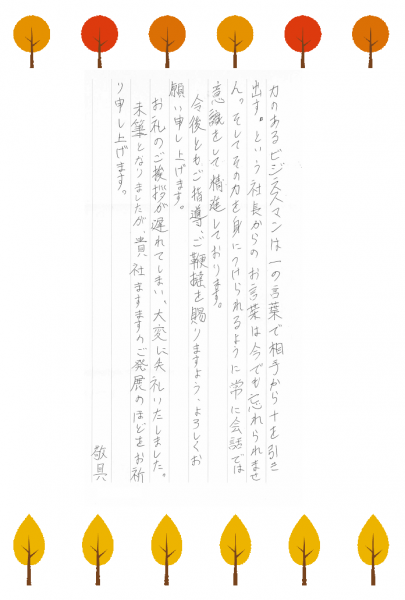 力のあるビジネスマンは一の言葉で相手から十を引き
出す。という社長からのお言葉は今でも忘れられませ
ん。そしてその力を身につけられるように常に会話では
意識をして精進しております。
今後ともご指導、ご鞭撻を賜りますよう、よろしくお
願い申し上げます。
お礼のご挨拶が遅れてしまい、大変に失礼いたしました。
末筆となりましたが、貴社ますますのご発展のほどをお祈
り申し上げます。
敬具